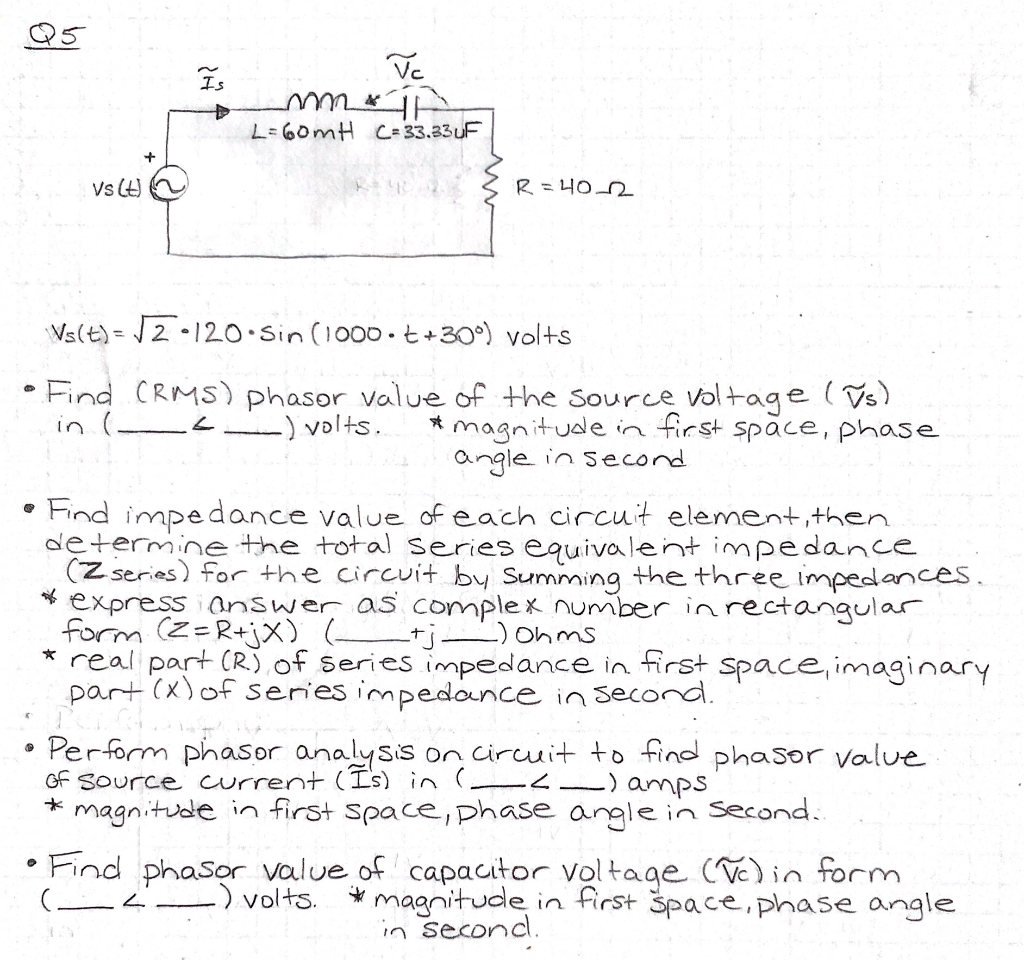 Q5
Ĩs
Ṽc
*
L=60mH C=33.33uF
+
Vs(t)
R = 40Ω
Vs(t) = √2 • 120 • Sin (1000 • t + 30°) volts
• Find (RMS) phasor value of the source voltage (Ṽs)
in (___∠___) volts. * magnitude in first space, phase
angle in second
• Find impedance value of each circuit element, then
determine the total series equivalent impedance
(Z series) for the circuit by summing the three impedances.
* express answer as complex number in rectangular
form (Z=R+jX) (___+j___) Ohms
* real part (R) of series impedance in first space, imaginary
part (X) of series impedance in second.
• Perform phasor analysis on circuit to find phasor value
of source current (Ĩs) in (___∠___) amps
* magnitude in first space, phase angle in second.
• Find phasor value of capacitor voltage (Ṽc) in form
(___∠___) volts. * magnitude in first space, phase angle
in second.